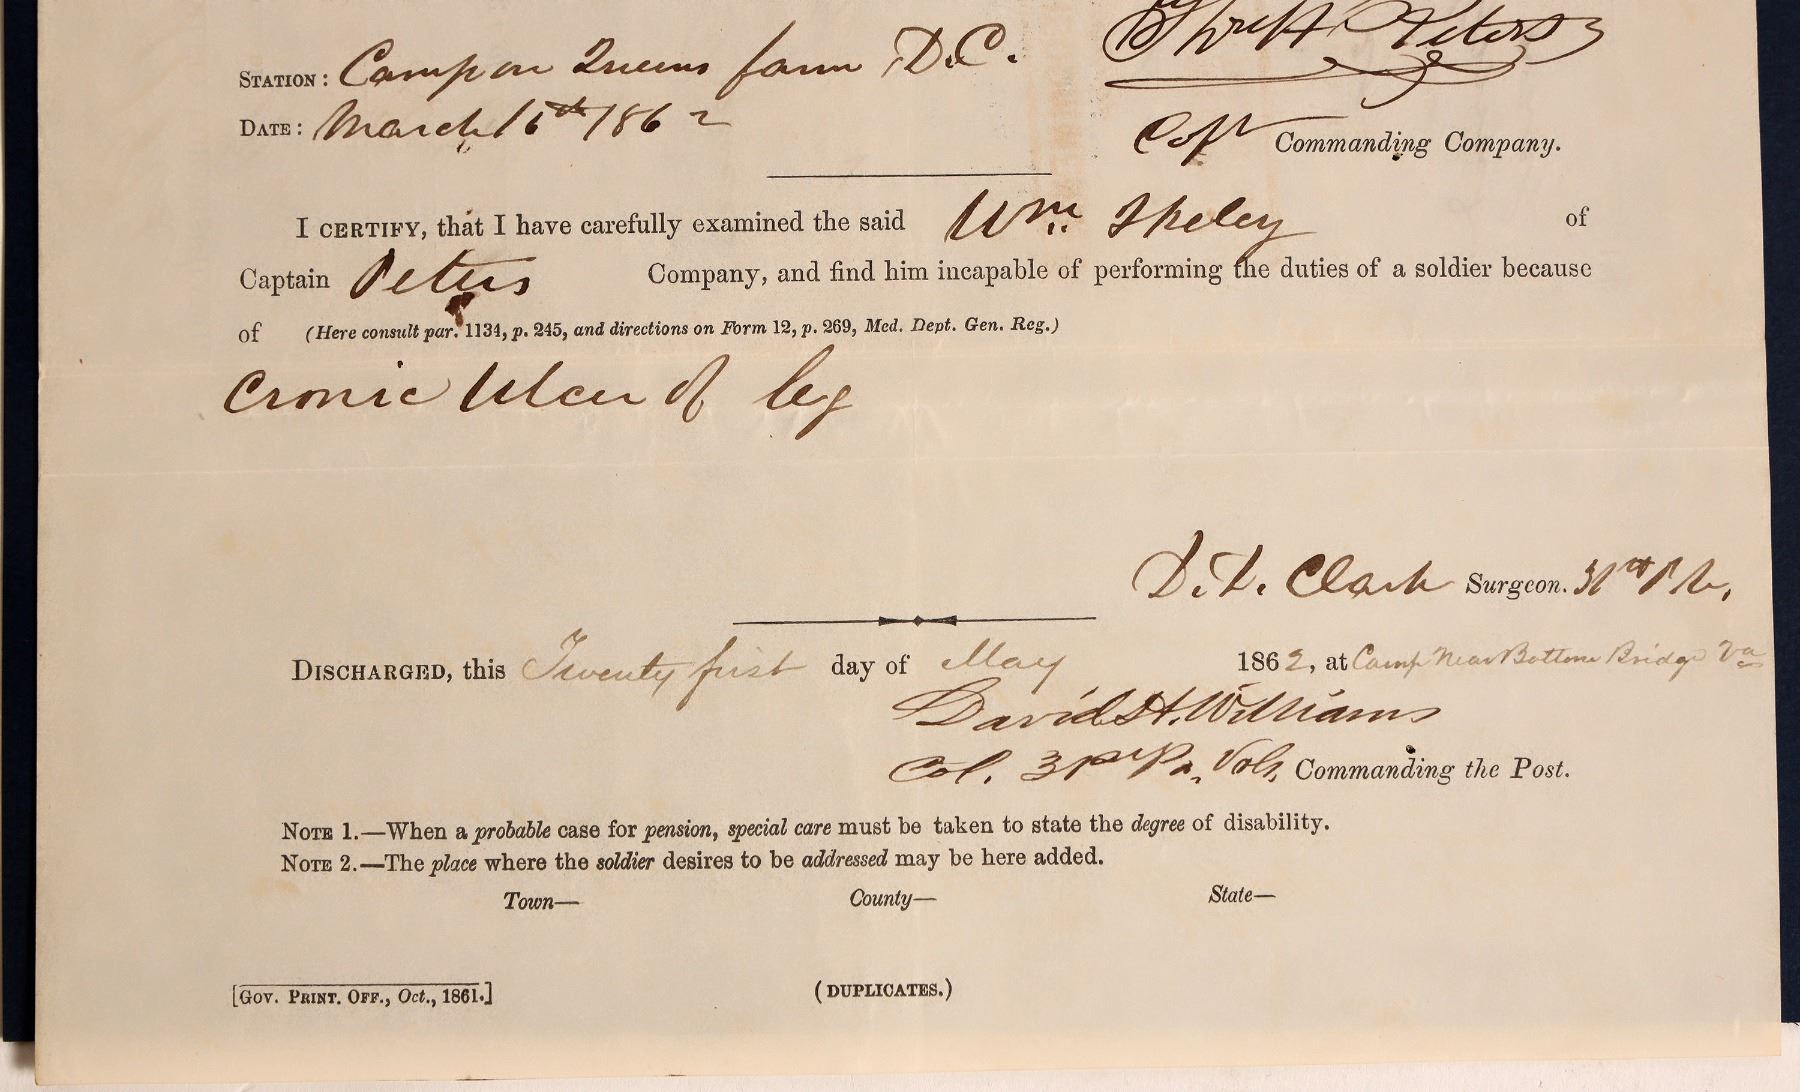 STATION: Camp on Queens farm D.C.
Peters
DATE: March 16th 1862
Capt Commanding Company.
I CERTIFY, that I have carefully examined the said Wm. Sheley of
Captain Peters Company, and find him incapable of performing the duties of a soldier because
of (Here consult par. 1134, p. 245, and directions on Form 12, p. 269, Med. Dept. Gen. Reg.)
Cronic Ulcer of leg
Clark Surgeon. 31st P.V.
DISCHARGED, this Twenty first day of May 1862, at Camp Near Bottom Bridge Va
David H. Williams
Col. 31st Pa. Vols. Commanding the Post.
NOTE 1.—When a probable case for pension, special care must be taken to state the degree of disability.
NOTE 2.—The place where the soldier desires to be addressed may be here added.
Town— County— State—
[GOV. PRINT. OFF., Oct., 1861.] (DUPLICATES.)